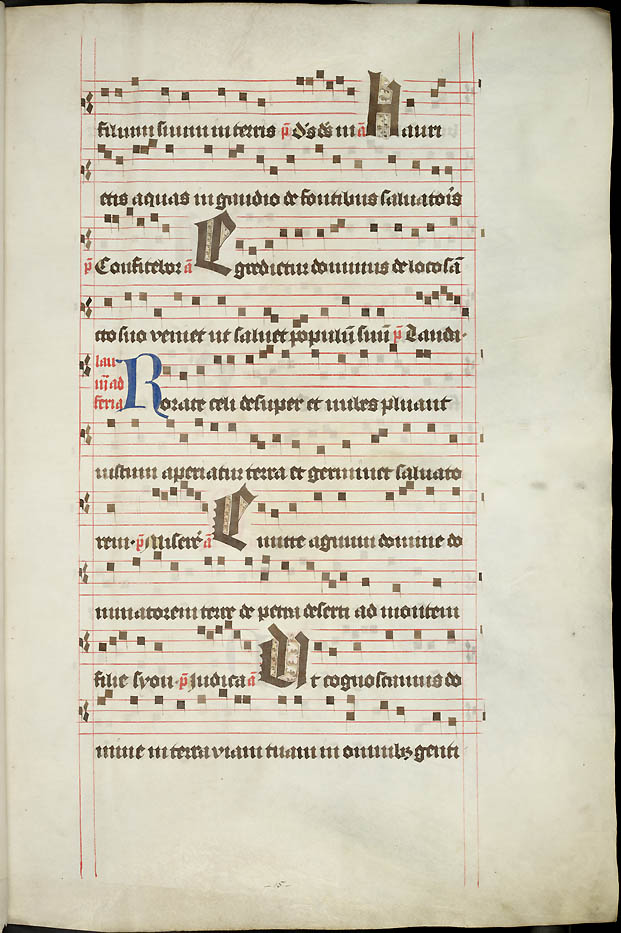 filium suum in terris p̄ d's d's m a Hauri
etis aquas in gaudio de fontibus saluato'is
p̄ Confitebor a Egredietur dominus de loco sā
cto suo veniet ut saluet populū suū p̄ Laudi·
lau
feria Rorate celi desuper et nubes pluant
iustum aperiatur terra et germinet saluato
rem· p̄ Misere' a Emitte agnum domine do
minatorem terre de petra deserti ad montem
filie syon· p̄ Judica a Ut cognoscamus do
mine in terra viam tuam in omnibꝫ genti
-15-